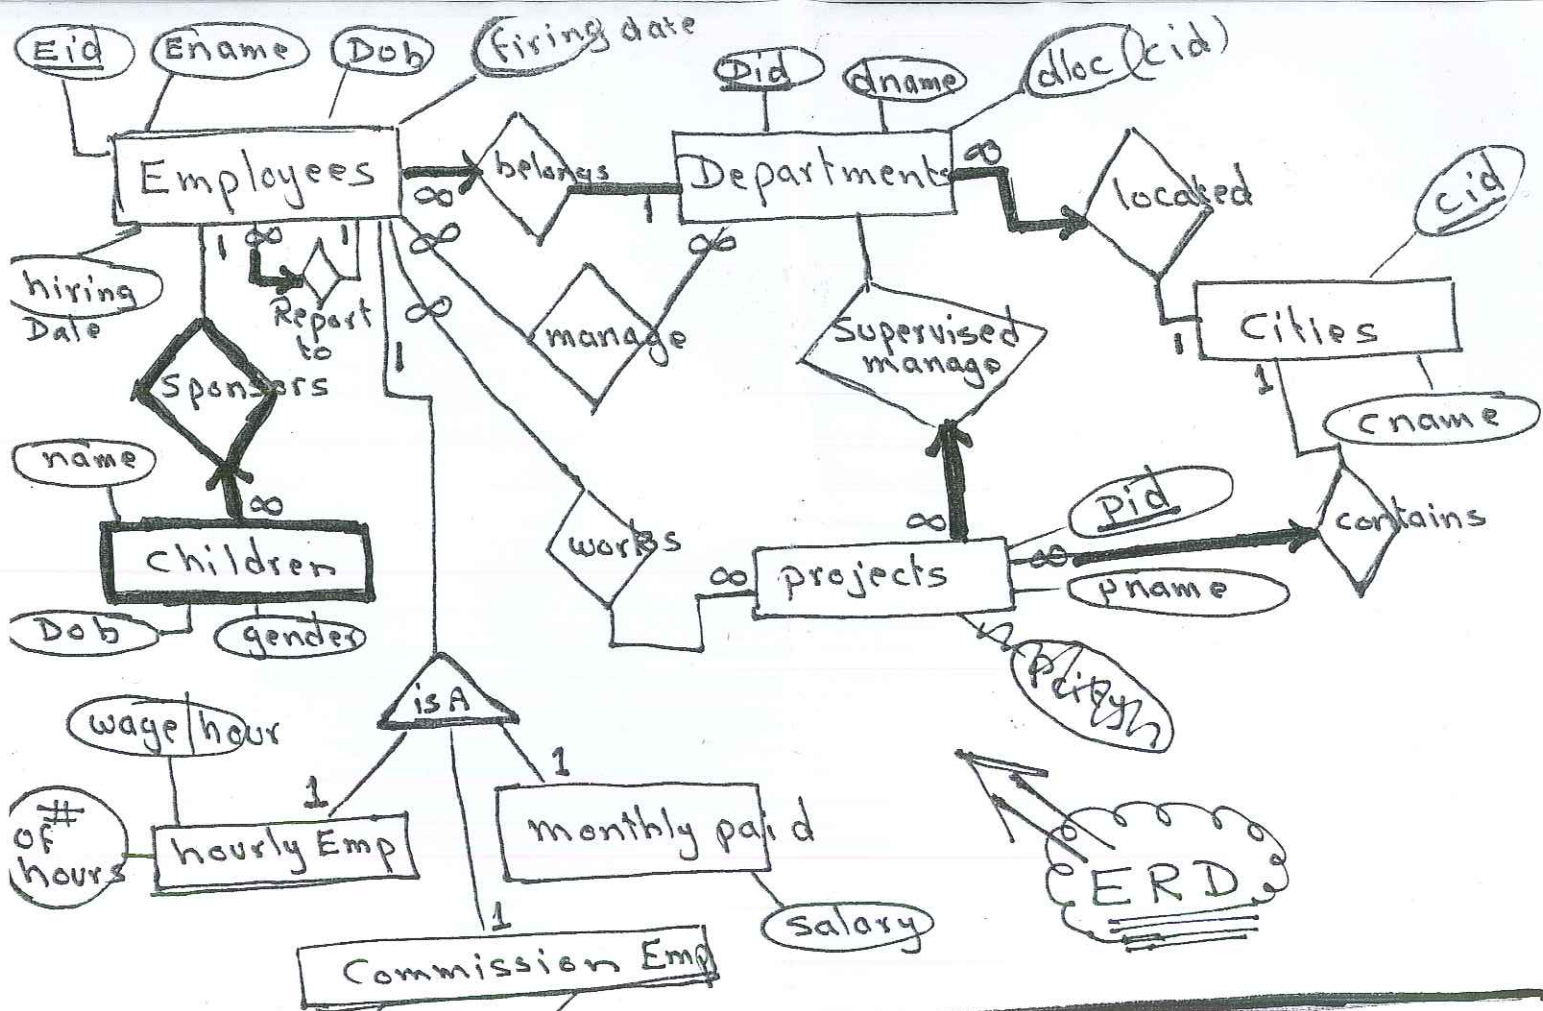 Eid
Ename
Dob
firing date
Did
dname
dloc (cid)
Employees
∞
belongs
1
Departments
∞
located
cid
hiring
Date
1
∞
1
Report
to
∞
∞
manage
∞
Supervised
manage
1
Cities
1
cname
Sponsors
1
name
∞
Children
Dob
gender
works
∞
∞
projects
pid
∞
contains
pname
pcity
isA
wage/hour
1
1
# of
hours
hourly Emp
monthly paid
1
salary
Commission Emp
ERD